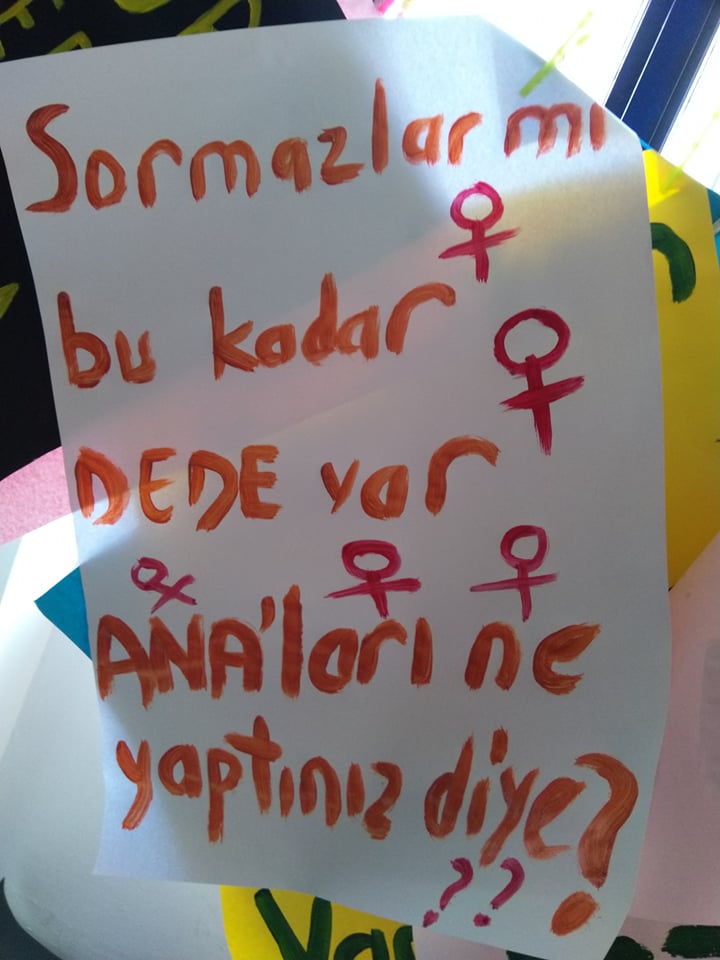 Sormazlar mı
bu kadar
DEDE var
ANA'ları ne
yaptınız diye?
??